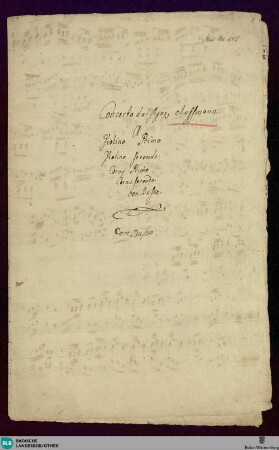 Concerto dal Sigre Hoffmann
A
Violino Primo
Violino Secondo
Corno Primo
Corno Secondo
Con Basso
Con Basso
BLB BADISCHE LANDESBIBLIOTHEK
Baden-Württemberg